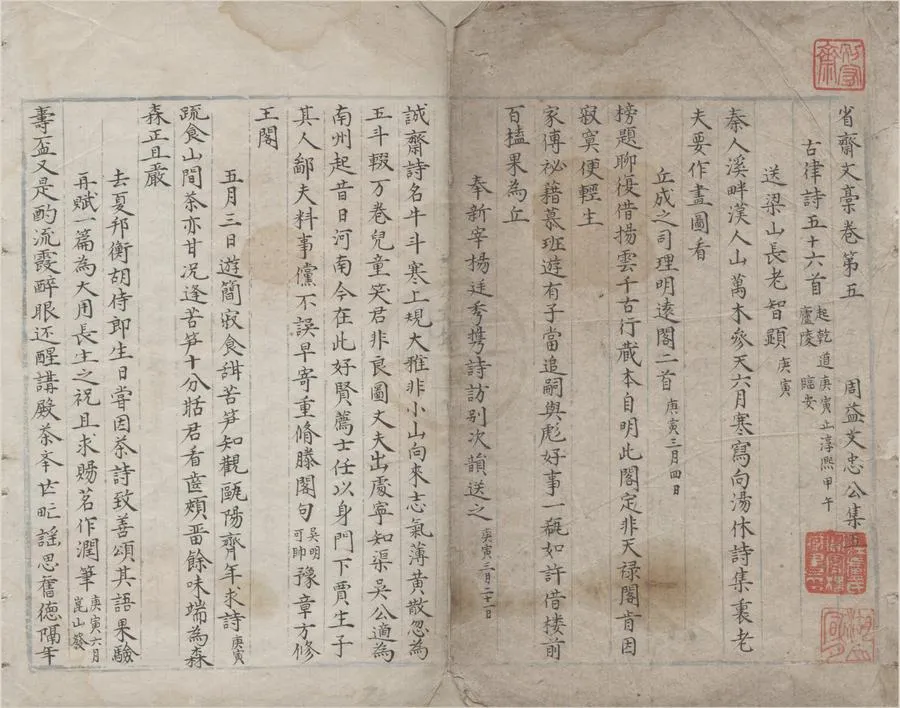 省齋文藁卷第五 周益文忠公集五
古律詩五十六首 起乾道庚寅止淳熙甲午 廬陵 臨安
送梁山長老智顗 庚寅
秦人溪畔漢人山萬木參天六月寒寫向湯休詩集裏老
夫要作畫圖看
丘成之司理明遠閣二首 庚寅三月四日
榜題聊復借揚雲千古行藏本自明此閣定非天禄閣肯因
寂寞便輕生
家傳祕籍慕班遊有子當追嗣與彪好事一瓻如許借楼前
百榼果為丘
奉新宰揚廷秀携詩訪别次韻送之 庚寅三月二十一日
誠齋詩名牛斗寒上規大雅非小山向來志氣薄黄散忽為
五斗輟万卷兒童笑君非良圖丈夫出處寧如渠吳公適為
南州起昔日河南今在此好賢薦士任以身門下賈生子
其人鄙夫料事儻不誤早寄重脩滕閣句 吳明可帥 豫章方修
王閣
五月三日遊簡寂食甜苦笋知觀甌陽齊年求詩 庚寅
疏食山間茶亦甘况逢苦笋十分甛君看齒頰留餘味端為森
森正且嚴
去夏邦衡胡侍郎生日嘗因茶詩致善頌其語果驗
再賦一篇為大用長生之祝且求賜茗作潤筆 庚寅六月 崑山發
壽盃又是酌流霞醉眼还醒講殿茶